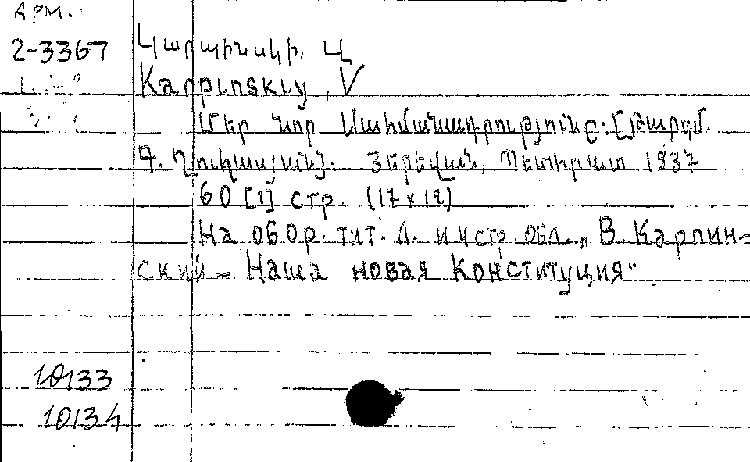 Арм.
2-3367 Կարպինսկի, Վ
Karpinskiy, V
Մեր նոր Սահմանադրությունը. [Թարգմ.
Գ. Ղուկասյան]. Յերեվան, Պետհրատ 1937
60 [1] стр. (17 x 12)
На обор. тит. л. и историч обл. „В. Карпин-
ский - Наша новая Конституция"
10133
10134